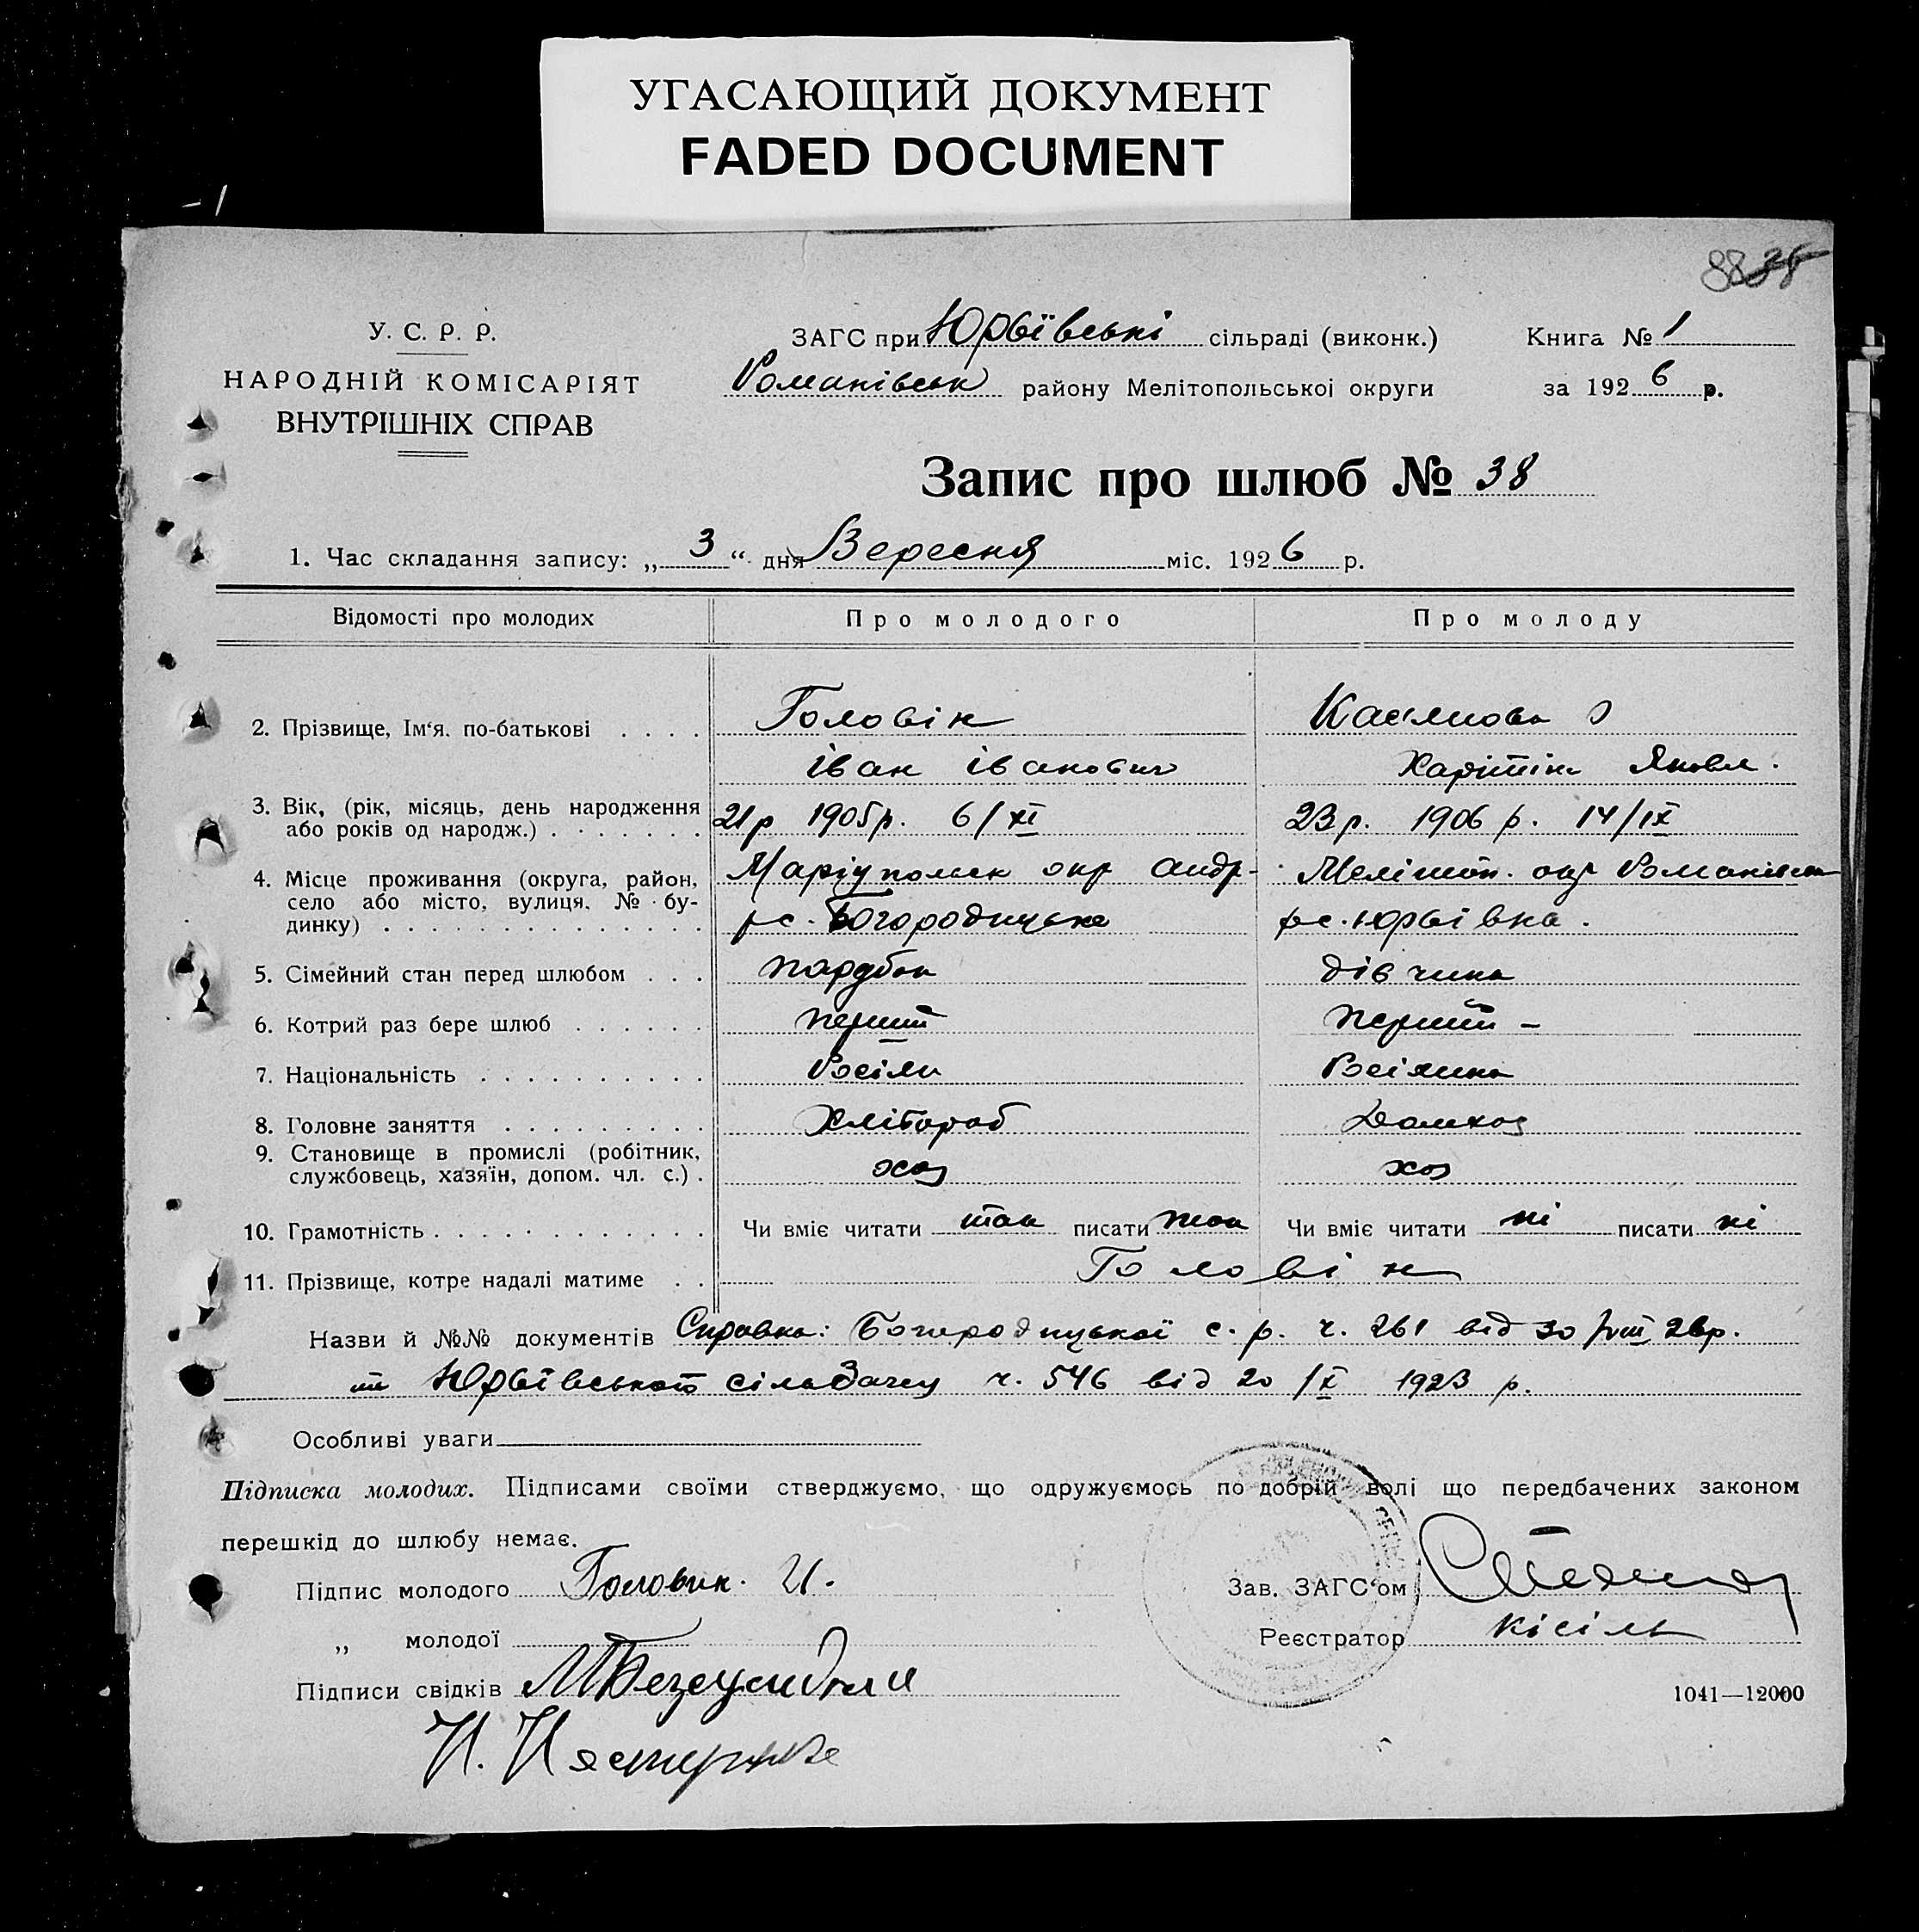 УГАСАЮЩИЙ ДОКУМЕНТ
FADED DOCUMENT
38
У. С. Р. Р.
НАРОДНІЙ КОМІСАРІЯТ
ВНУТРІШНІХ СПРАВ
ЗАГС при Юрьївські сільраді (виконк.)
Романівськ району Мелітопольської округи
Книга № 1
за 1926 р.
Запис про шлюб № 38
1. Час складання запису: „ 3 “ дня Вересня міс. 1926 р.
Відомості про молодих
Про молодого
Про молоду
2. Прізвище, Ім‘я, по-батькові . . . .
Головін
Іван Іванович
Касянова
Харітіна Яковл.
3. Вік, (рік, місяць, день народження
або років од народж.) . . . . . . .
21р 1905р. 6/XI
23р. 1906 р. 14/IX
4. Місце проживання (округа, район,
село або місто, вулиця, № бу-
динку) . . . . . . . . . . . . . .
Маріупольск окр Андр-
рс. Богородицьке
Меліттоп. окр Романівськ
рс. Юрьівка.
5. Сімейний стан перед шлюбом . . .
парубок
дівчина
6. Котрий раз бере шлюб . . . . . .
перший
перший –
7. Національність . . . . . . . . . .
Росіян
Росіянка
8. Головне заняття . . . . . . . . .
Хлібороб
Домхоз
9. Становище в промислі (робітник,
службовець, хазяїн, допом. чл. с.) .
хоз
хоз
10. Грамотність . . . . . . . . . . . .
Чи вміє читати так писати так
Чи вміє читати ні писати ні
11. Прізвище, котре надалі матиме . .
Головін
Назви й №№ документів Справка: Богородицької с. р. ч. 261 від 30/VIII 26р.
Юрьївського ч. 546 від 20/IX 1923 р.
Особливі уваги
Підписка молодих. Підписами своїми стверджуємо, що одружуємось по добрій волі що передбачених законом
перешкід до шлюбу немає.
Підпис молодого Головин. И.
„ молодої
Підписи свідків
Зав. ЗАГС‘ом
Реєстратор Кісіль
1041—12000